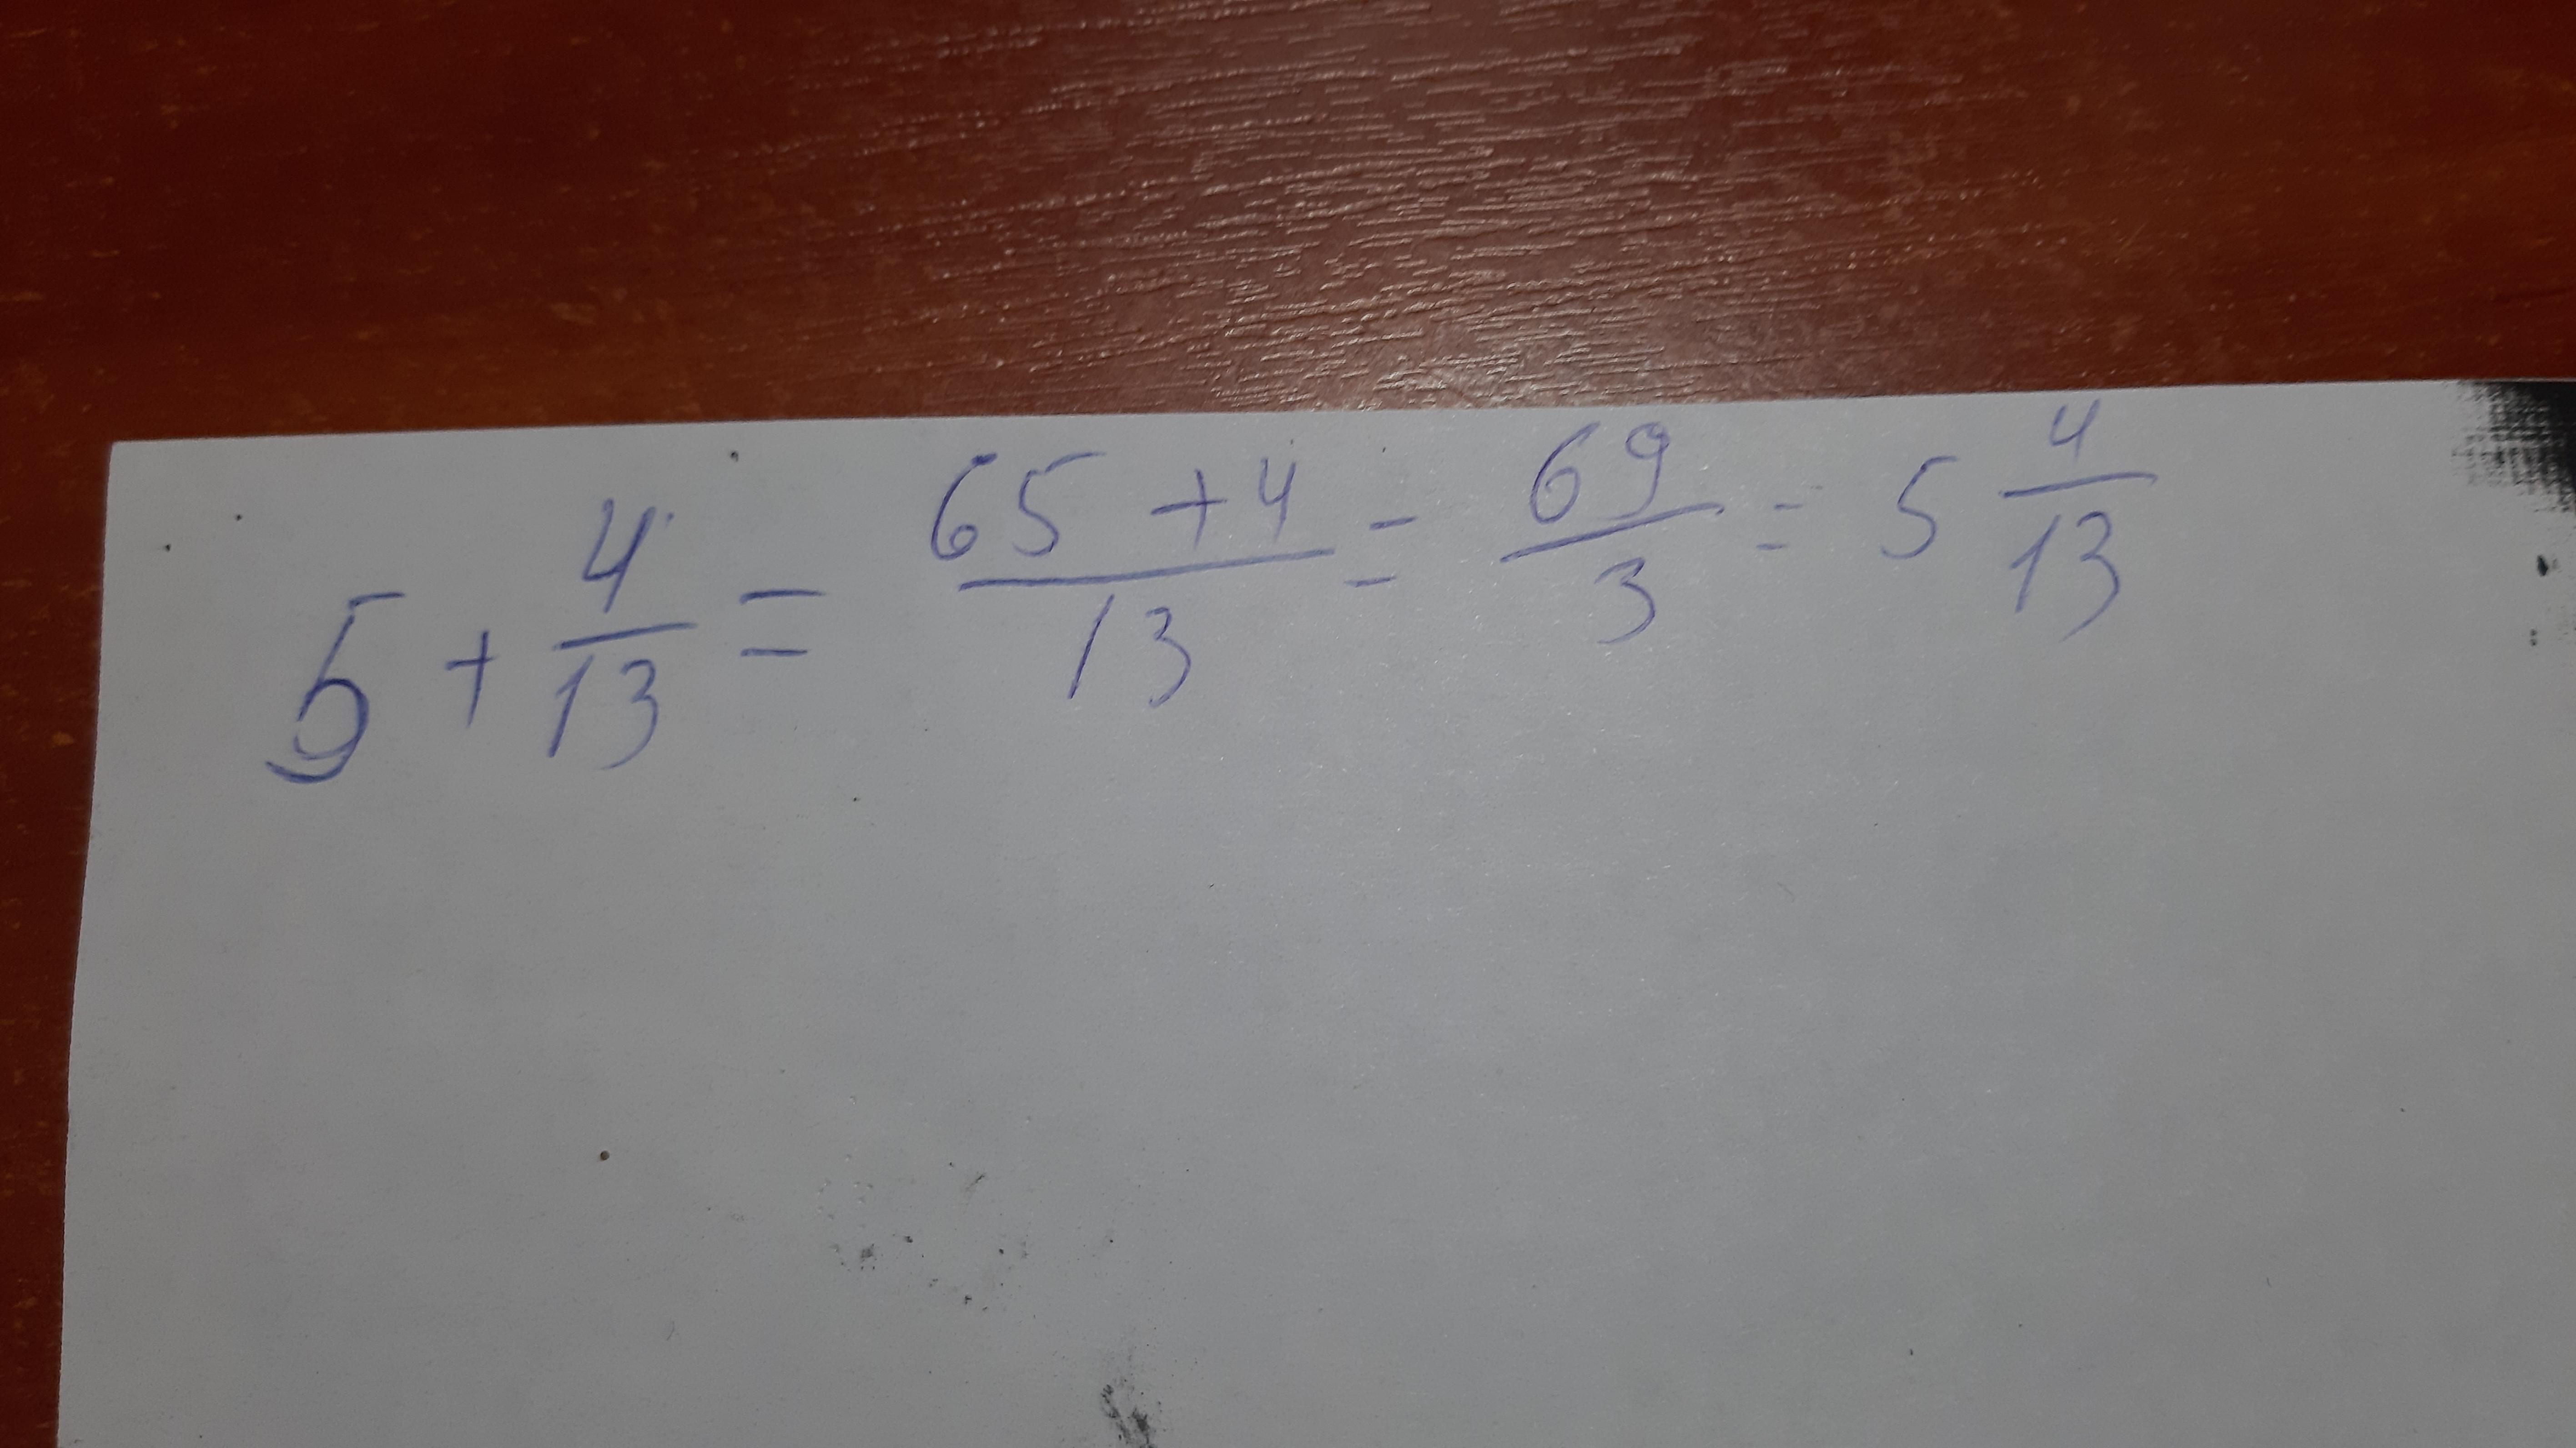 5 + 4/13 = (65 + 4)/13 = 69/3 = 5 4/13